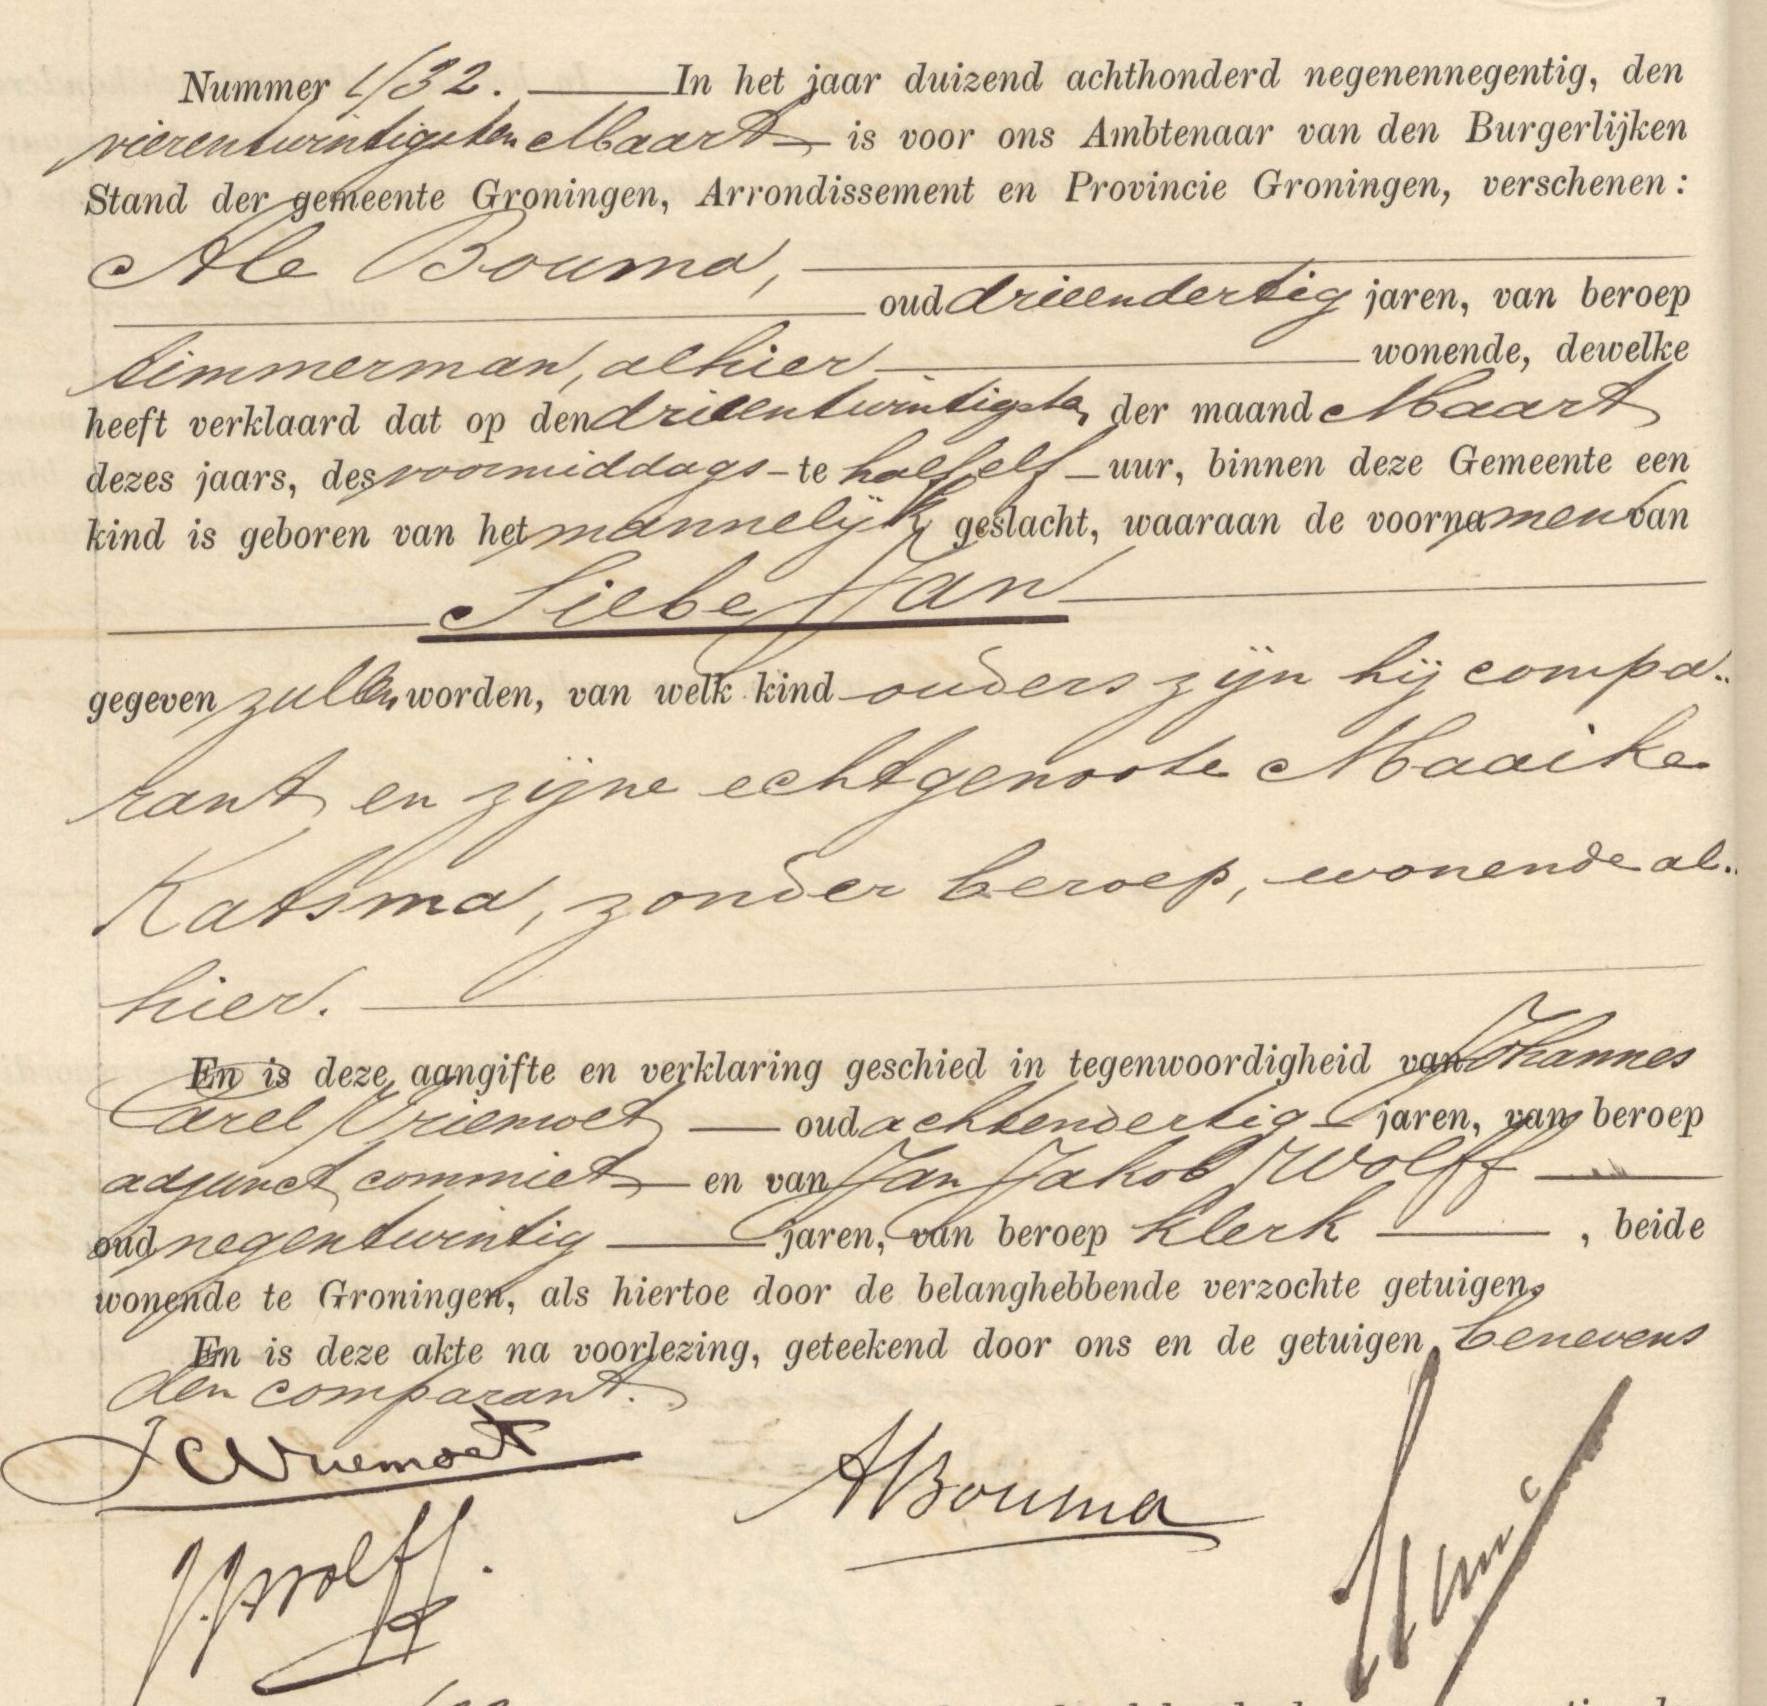 Nummer 432. In het jaar duizend achthonderd negenennegentig, den
vierentwintigsten Maart is voor ons Ambtenaar van den Burgerlijken
Stand der gemeente Groningen, Arrondissement en Provincie Groningen, verschenen:
Ale Bouma,
oud drieendertig jaren, van beroep
timmerman, alhier wonende, dewelke
heeft verklaard dat op den drieentwintigsten der maand Maart
dezes jaars, des voormiddags te half elf uur, binnen deze Gemeente een
kind is geboren van het mannelijk geslacht, waaraan de voornamen van
Siebe Jan
gegeven zullen worden, van welk kind ouders zijn hij compa-
rant en zijne echtgenoote Maaike
Katsma, zonder beroep, wonende al-
hier.
En is deze aangifte en verklaring geschied in tegenwoordigheid van Johannes
Carel Vriemoet oud achtendertig jaren, van beroep
adjunct commies en van Jan Jakob Wolff
oud negentwintig jaren, van beroep klerk, beide
wonende te Groningen, als hiertoe door de belanghebbende verzochte getuigen.
En is deze akte na voorlezing, geteekend door ons en de getuigen, benevens
den comparant.
J C Vriemoet
A Bouma
J. J. Wolff.